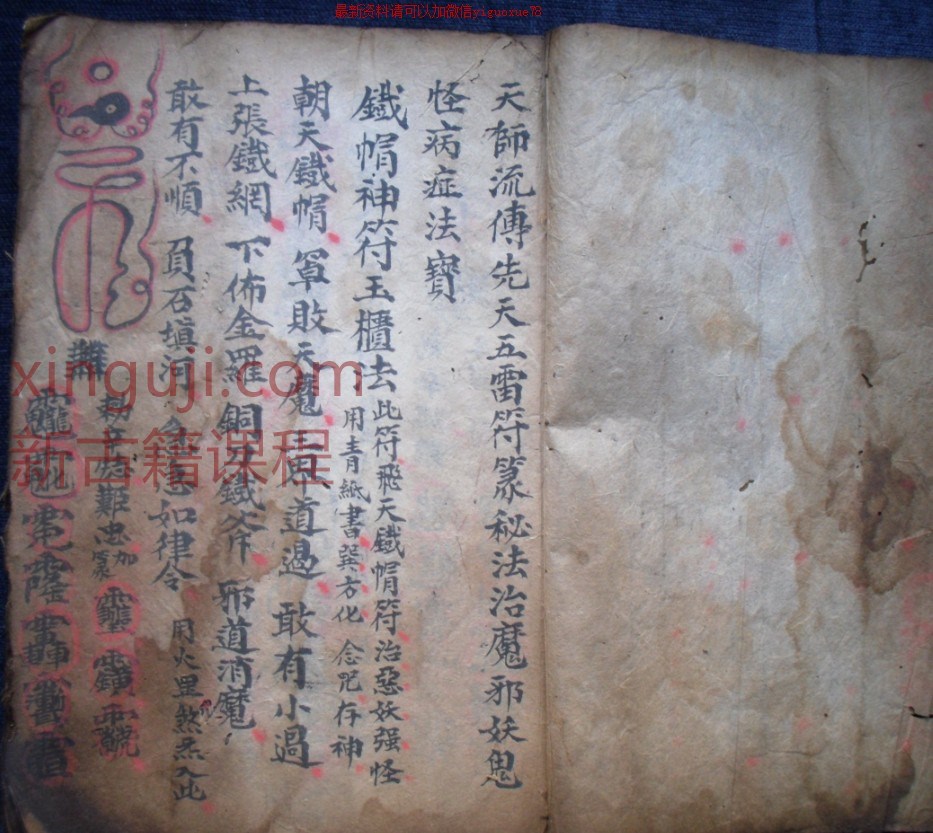 最新资料请可以加微信yiguoxue78
天師流傳先天五雷符篆秘法治魔邪妖鬼
怪病症法寶
鐵帽神符玉櫃法
此符飛天鐵帽符治惡妖强怪
用青紙書巽方化 念咒存神
朝天鐵帽 罩敗天魔 王母道過 敢有小過
上張鐵網 下佈金羅 銅刀鐵斧 邪道消魔
敢有不順 負石填河 急急如律令 用火罡煞炁入此
xinguji.com
新古籍课程